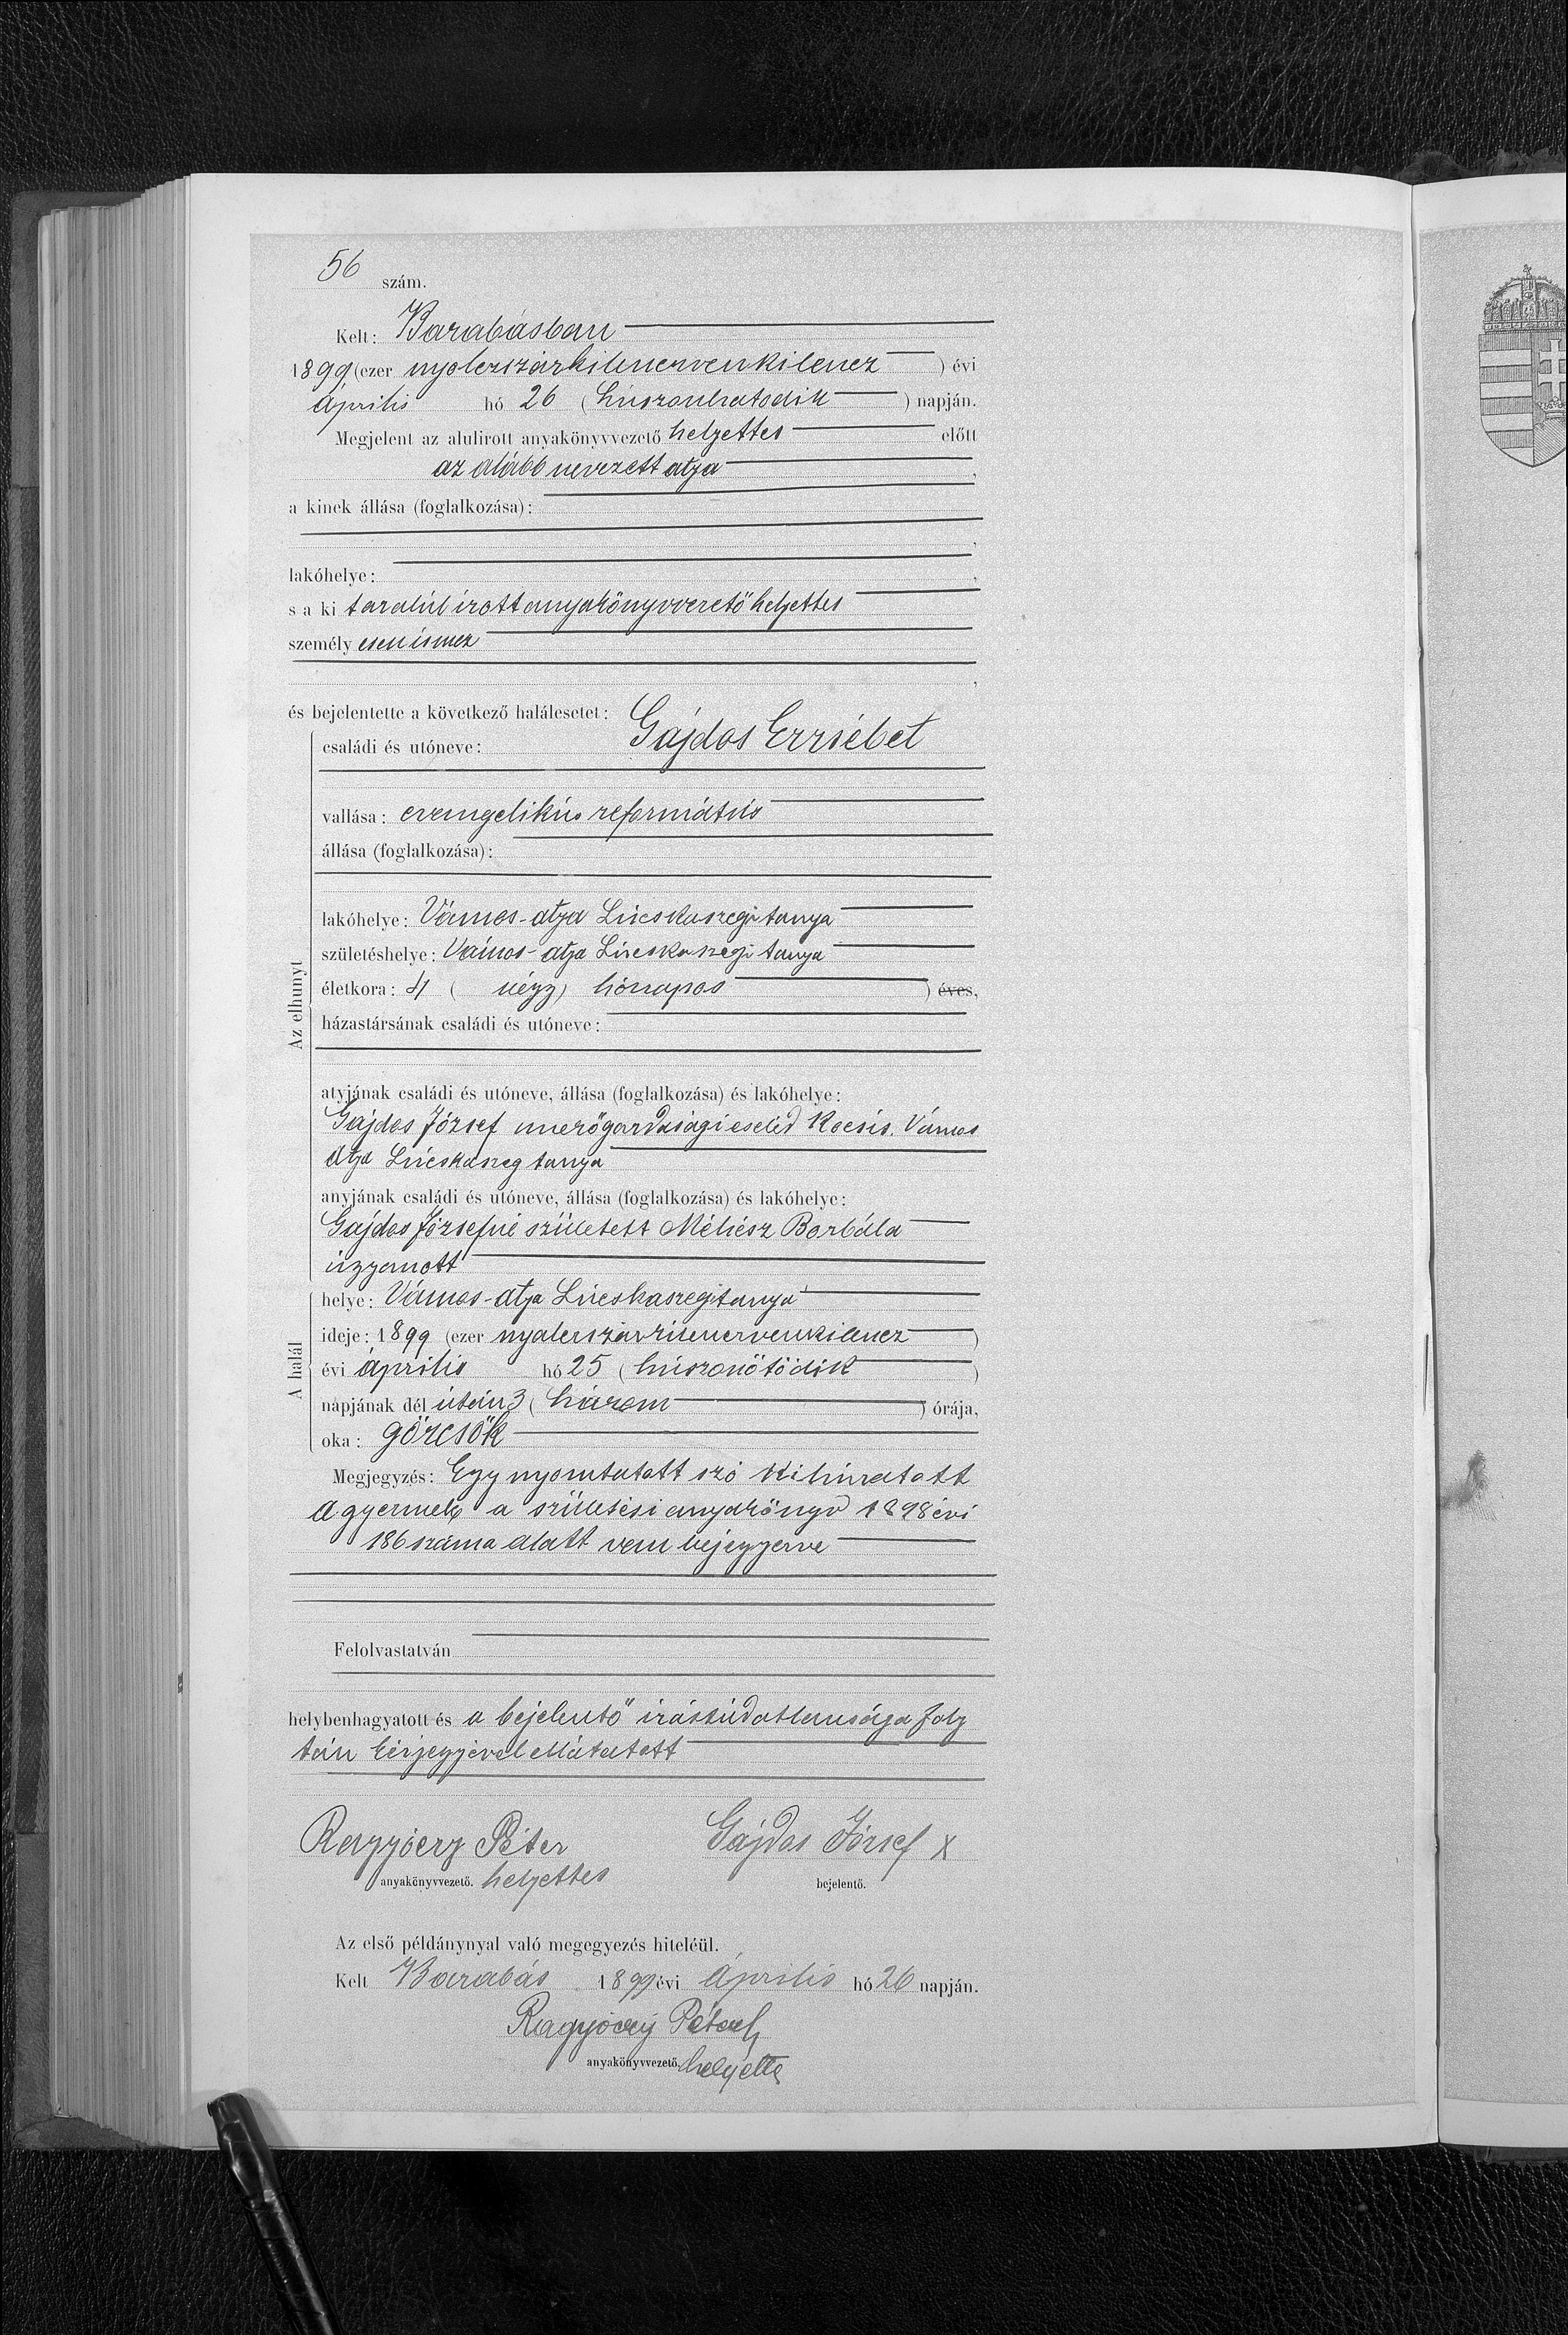 56 szám.
Kelt: Barabásban
1899, (ezer nyolczszázkilenczvenkilencz) évi
április hó 26 (húszonhatodik) napján.
Megjelent az alulirott anyakönyvvezető helyettes előtt
az alább nevezett atya,
a kinek állása (foglalkozása):
,
lakóhelye: ,
s a ki azalúl írott anyakönyvvezető helyettes
személyesen ismer
,
és bejelentette a következő halálesetet:
Az elhunyt
családi és utóneve: Gájdos Erzsébet
vallása: evangelikús református
állása (foglalkozása):
lakóhelye: Vámos-atya Lúcskaszegi tanya
születéshelye: Vámos-atya Lúcskaszegi tanya
életkora: 4 (négy) hónapos ) éves,
házastársának családi és utóneve:
atyjának családi és utóneve, állása (foglalkozása) és lakóhelye:
Gájdos József mezőgazdasági cseléd Kocsis. Vámos
Atya Lúcskaszeg tanya
anyjának családi és utóneve, állása (foglalkozása) és lakóhelye:
Gájdos Józsefné született Méhész Borbála
úgyanott
A halál
helye: Vámos-atya Lúcskaszegitanya
ideje: 1899 (ezer nyolczszázkilenczvenkilencz)
évi április hó 25 (húszonötödik)
napjának dél útán 3 (három) órája,
oka: görcsök
Megjegyzés: Egy nyomtatott szó kihúzatott
A gyermek a születési anyakönyv 1898 évi
186 száma alatt van bejegyezve
Felolvastatván
helybenhagyatott és a bejelentő írástúdatlansága foly
tán kézjegyével ellátatott
Ragyóczy Péter Gájdos József X
anyakönyvvezető. helyettes bejelentő.
Az első példánynyal való megegyezés hiteléül.
Kelt Barabás 1899 évi április hó 26 napján.
Ragyóczy Péter
anyakönyvvezető helyettes